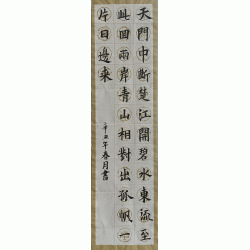 天門中斷楚江開碧水東流至
此回兩岸青山相對出孤帆一
片日邊來
辛丑年春月書